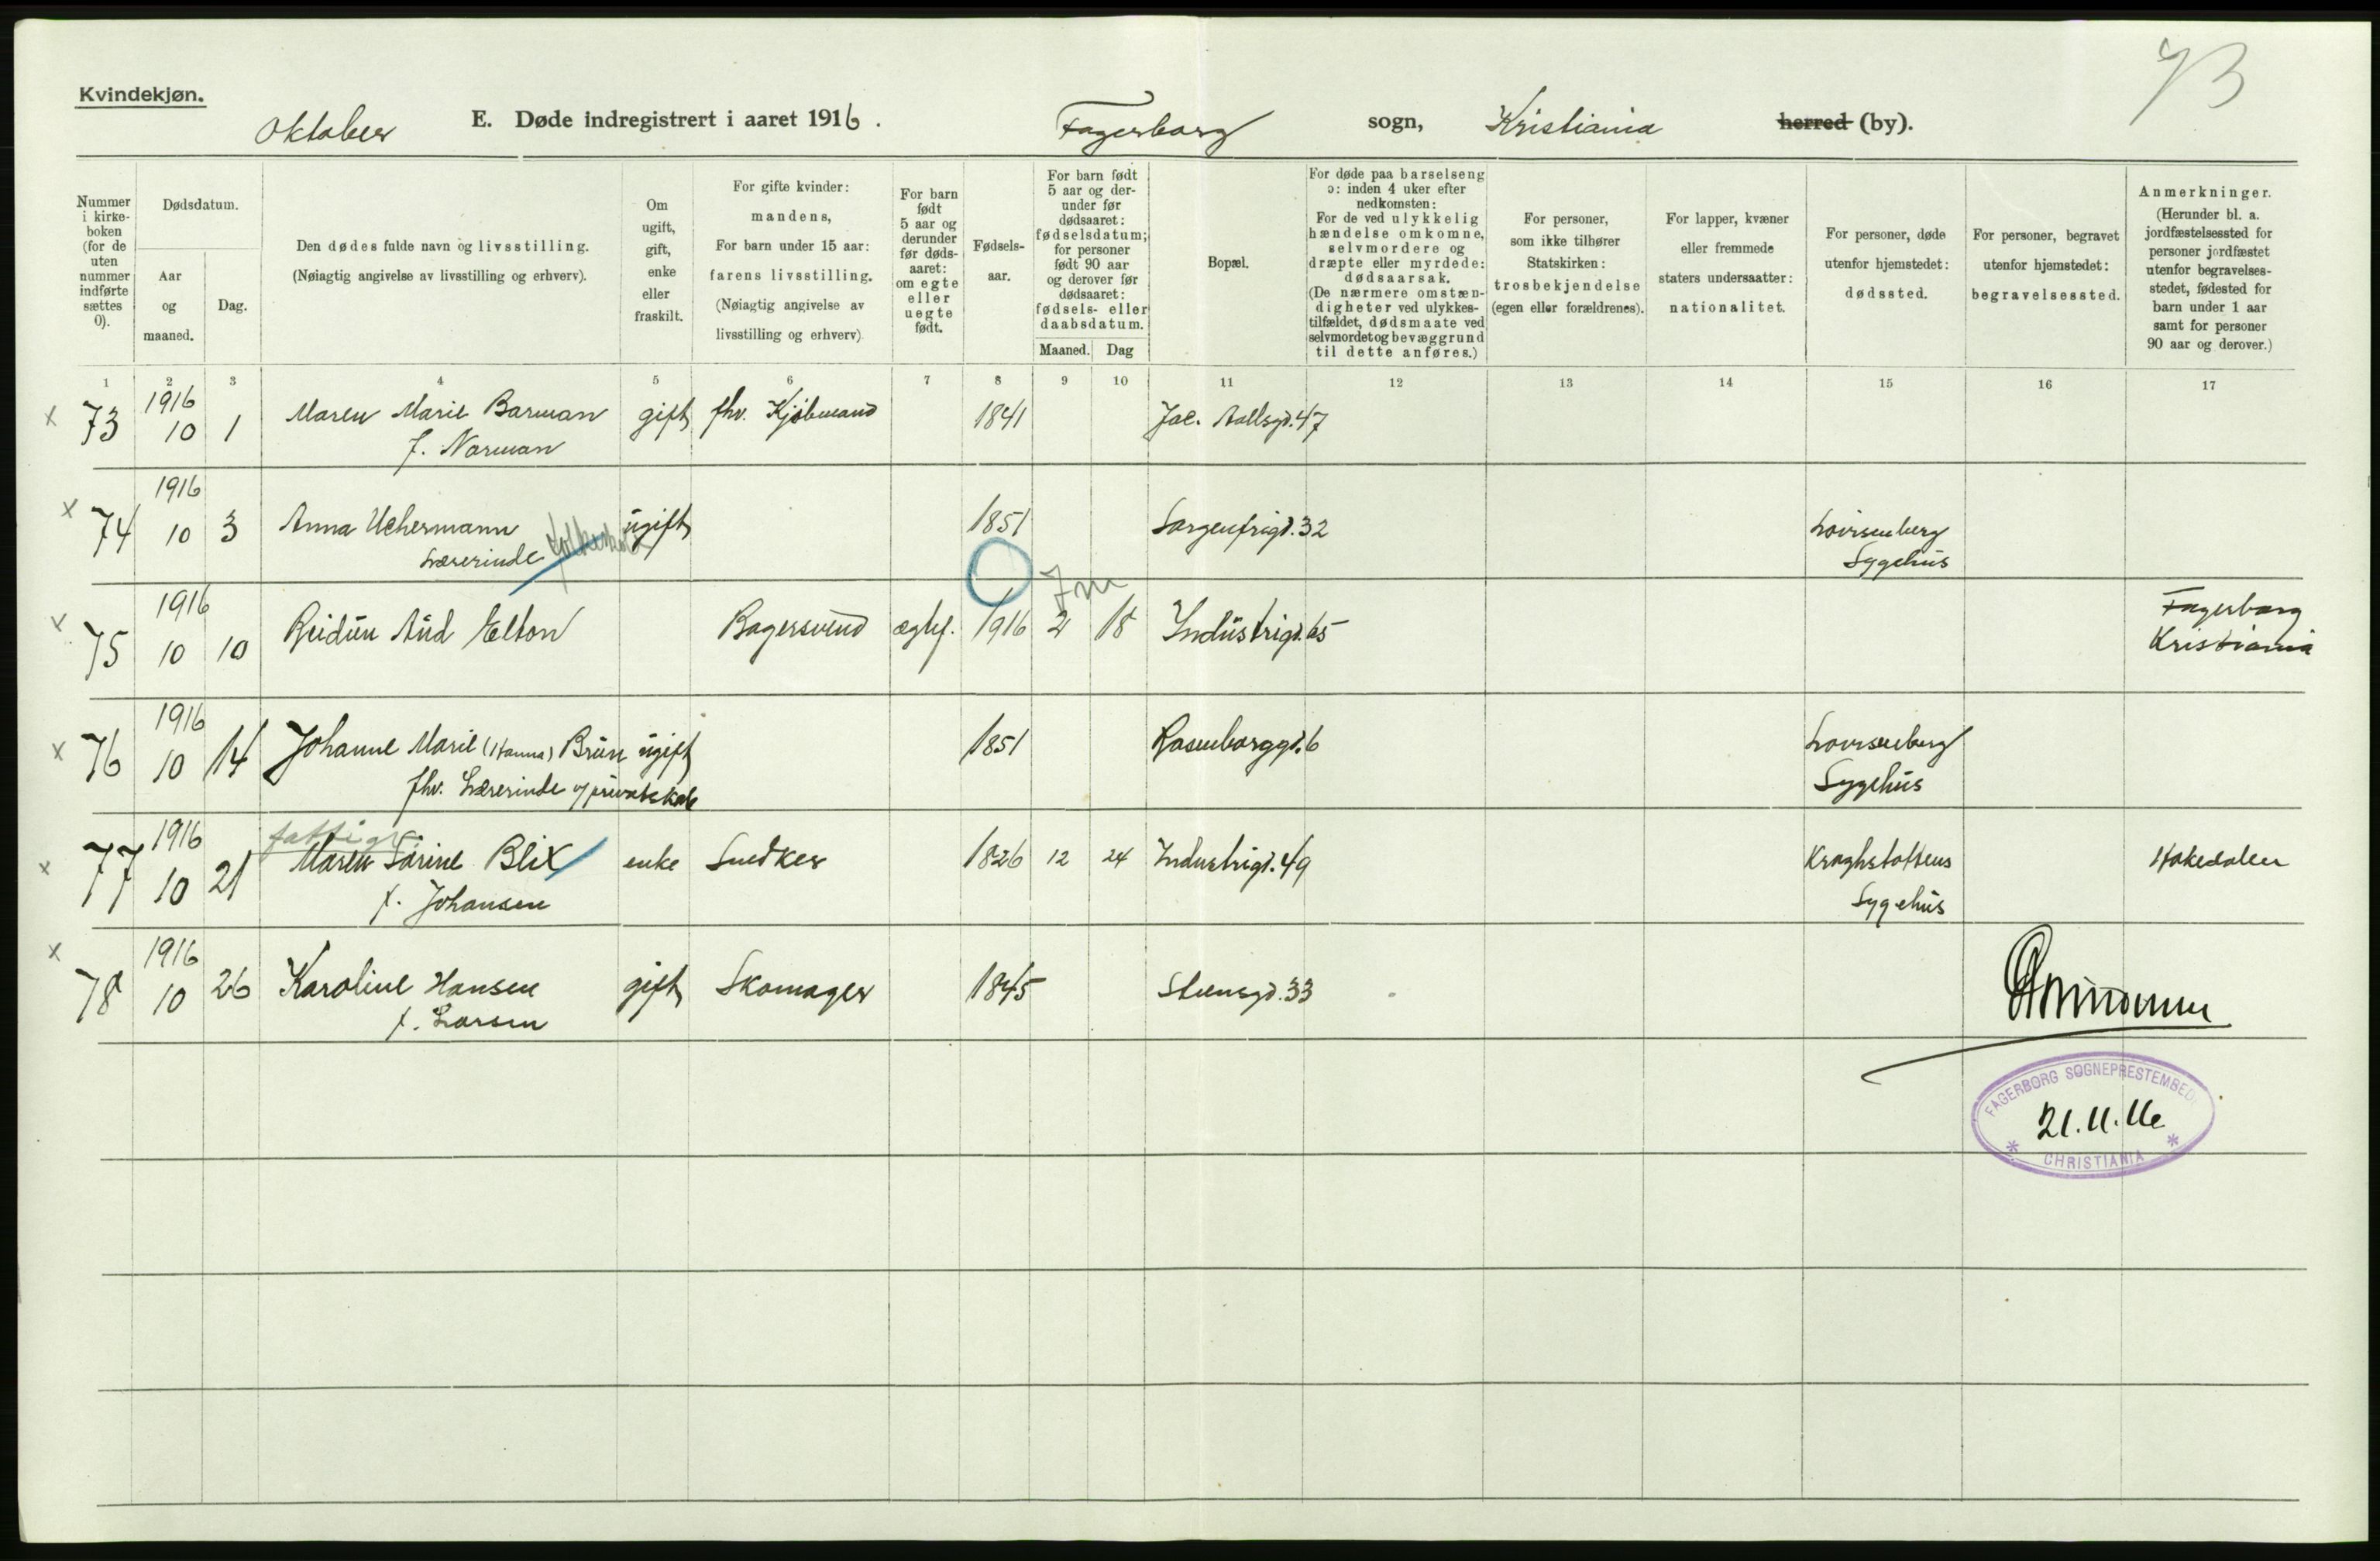 73
Kvindekjøn.
Oktober E. Døde indregistrert i aaret 1916. Fagerborg sogn, Kristiania herred (by).
Nummer i kirke-
boken
(for de
uten
nummer
indførte
sættes
0).
Dødsdatum.
Aar
og
maaned.
Dag.
Den dødes fulde navn og livsstilling.
(Nøiagtig angivelse av livsstilling og erhverv).
Om
ugift,
gift,
enke
eller
fraskilt.
For gifte kvinder:
mandens,
For barn under 15 aar:
farens livsstilling.
(Nøiagtig angivelse av
livsstilling og erhverv)
For barn
født
5 aar og
derunder
før døds-
aaret:
om egte
eller
uegte
født.
Fødsels-
aar.
For barn født
5 aar og der-
under før
dødsaaret:
fødselsdatum;
for personer
født 90 aar
og derover før
dødsaaret:
fødsels- eller
daabsdatum.
Maaned. Dag
Bopæl.
For døde paa barselseng
ɔ: inden 4 uker efter
nedkomsten:
For de ved ulykkelig
hændelse omkomne,
selvmordere og
dræpte eller myrdede:
dødsaarsak.
(De nærmere omstæn-
digheter ved ulykkes-
tilfældet, dødsmaate ved
selvmordet og bevæggrund
til dette anføres.)
For personer,
som ikke tilhører
Statskirken:
trosbekjendelse
(egen eller forældrenes).
For lapper, kvæner
eller fremmede
staters undersaatter:
nationalitet.
For personer, døde
utenfor hjemstedet:
dødssted.
For personer, begravet
utenfor hjemstedet:
begravelsessted.
Anmerkninger.
(Herunder bl. a.
jordfæstelsessted for
personer jordfæstet
utenfor begravelses-
stedet, fødested for
barn under 1 aar
samt for personer
90 aar og derover.)
1 2 3 4 5 6 7 8 9 10 11 12 13 14 15 16 17
x 73 1916 10 1 Maren Marie Barman gift fhv. Kjøbmand 1841 Jac. Aallsgd. 47
f. Norman
x 74 1916 10 3 Anna Uchermann ugift 1851 Sorgenfrigd. 32 Lovisenberg
Lærerinde folkeskole Sygehus
7m
x 75 1916 10 10 Reidun Aud Elton Bagersvend ægtef. 1916 2 18 Industrigd. 65 Fagerborg
Kristiania
x 76 1916 10 14 Johanne Marie (Hanna) Brun ugift 1851 Rosenborggd. 6 Lovisenberg
fhv. Lærerinde v/ privatskole Sygehus
fattig
x 77 1916 10 21 Maren Sørine Blix enke Snedker 1826 12 24 Industrigd. 49 Kroghstøttens Hakedalen
f. Johansen Sygehus
x 78 1916 10 26 Karoline Hansen gift Skomager 1845 Stensgd. 33
f. Larsen
FAGERBORG SOGNEPRESTEMBEDE
21.11.16
* CHRISTIANIA *